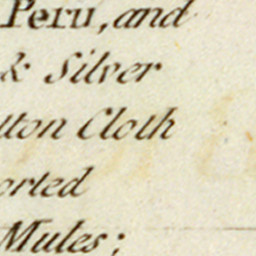 Peru, and
& Silver
tton Cloth
orted
Mules;